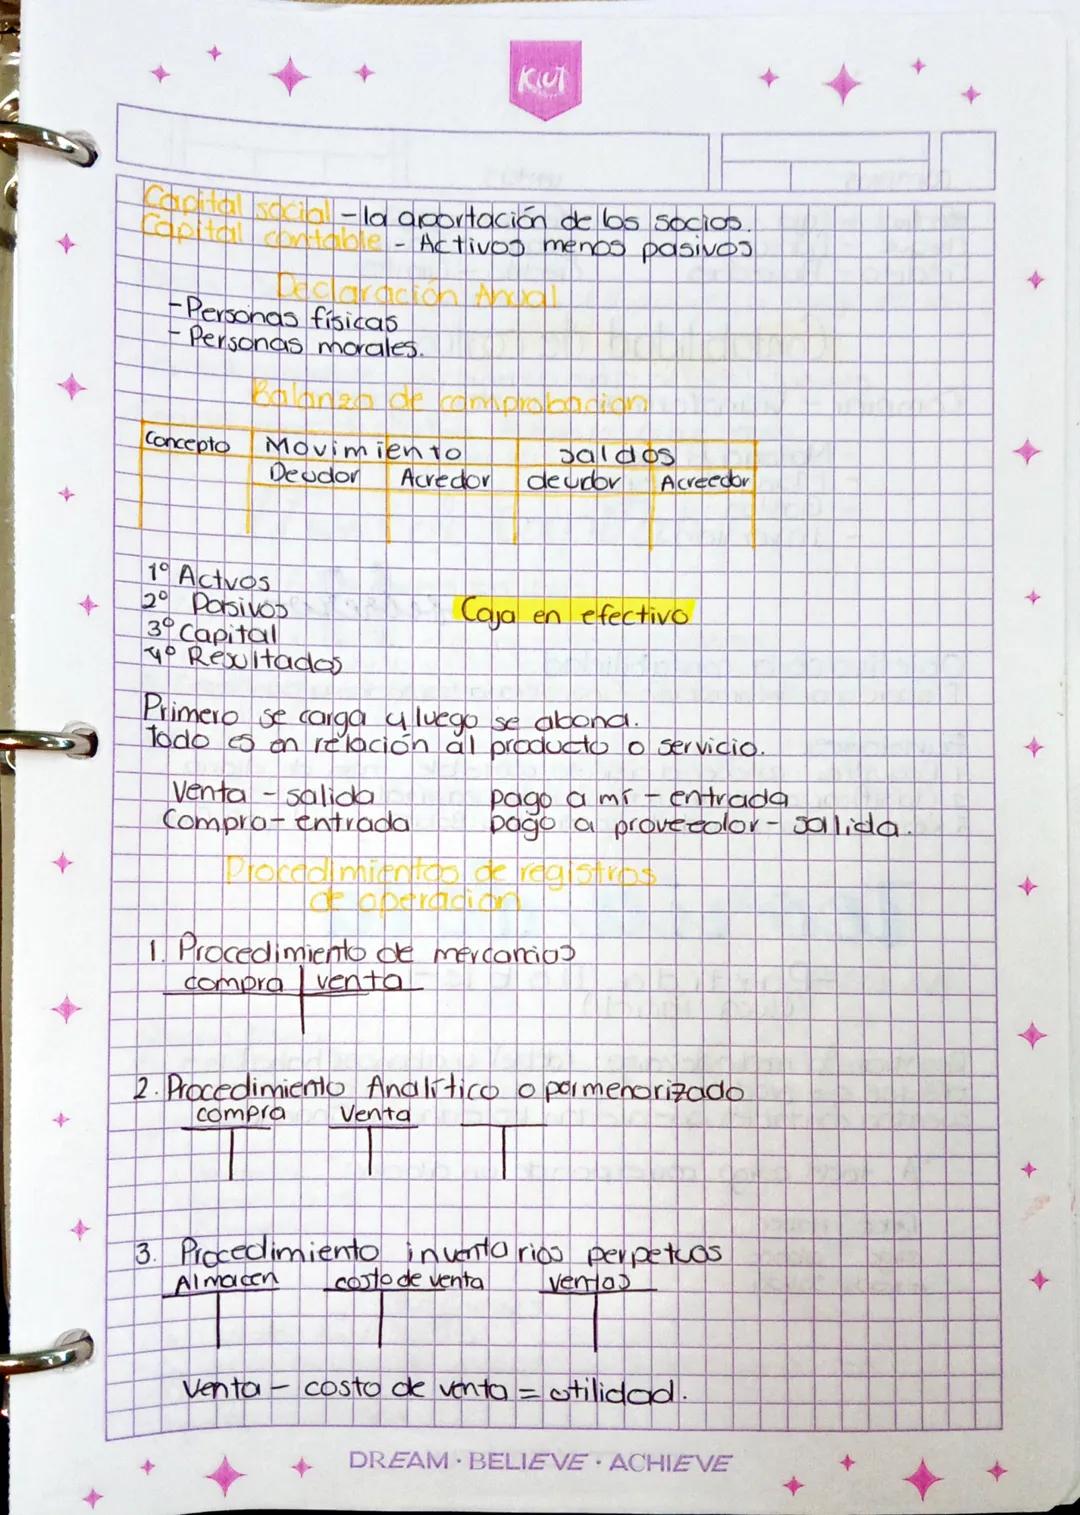 KIUT
Capital social - la aportación de los socios.
Capital contable - Activos menos pasivos
Declaración Anual
- Personas físicas
- Personas morales.
Balanza de comprobacion
Concepto Movimiento saldos
Deudor Acredor deudor Acreedor
1º Actvos
2º Pasivos
Caja en efectivo
3º Capital
4º Resultados
Primero se carga y luego se abona.
Todo es en relación al producto o servicio.
Venta - salida pago a mí - entrada
Compra - entrada pago a proveedor - salida.
Procedimientos de registros
de operacion
1. Procedimiento de mercancias
compra venta
2. Procedimiento Analítico o pormenorizado
compra Venta
3. Procedimiento inventarios perpetuos
Almacen costo de venta ventas
Venta - costo de venta = utilidad.
DREAM · BELIEVE · ACHIEVE